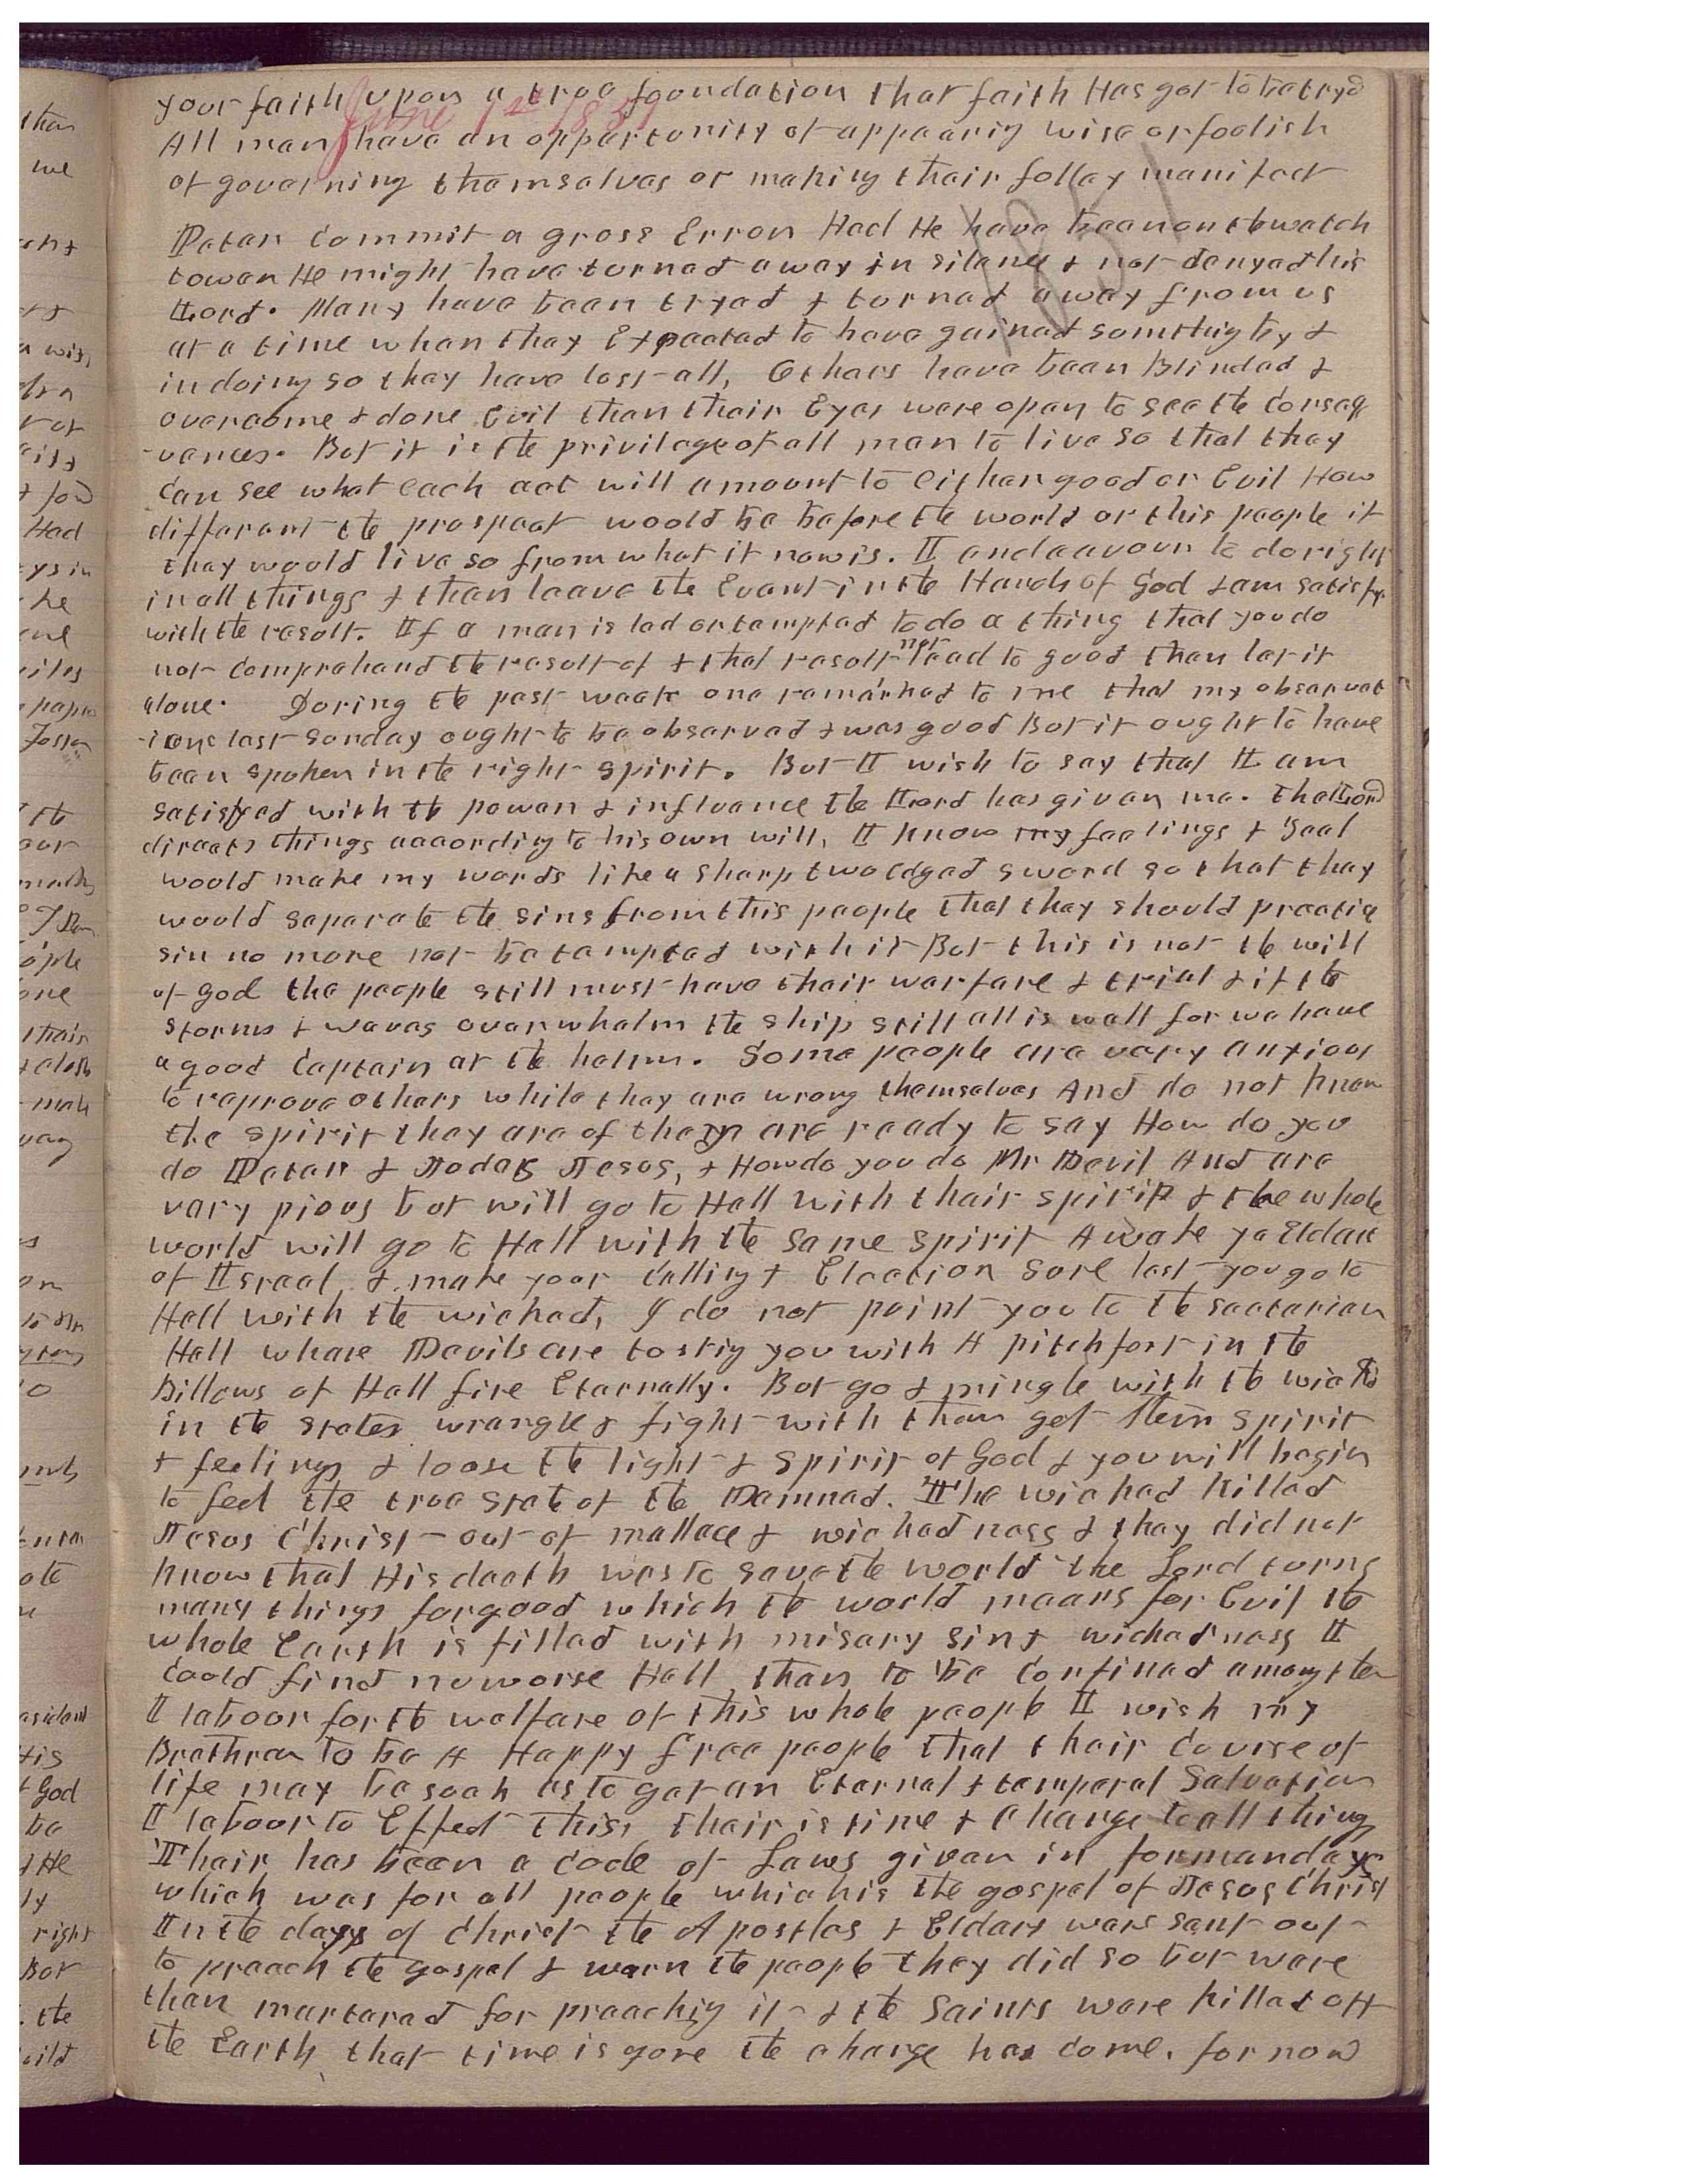 your faith upon a true foundation that faith Has got to be tryd
June 1st 1857
All men have an opportunity of appearing wise or foolish
of governing themselves or making their folley manifest
1857
Peter Commit a gross Error Had He have been on the watch
tower He might have turned away in silance & not denyed his
Lord. Many have been tryed & turned away from us
at a time when they Expected to have gained something by &
in doing so they have lost all, Others have been Blinded &
overcome & done Evil then their Eyes were open to see the Conseq
-uances. But it is the privilege of all men to live so that they
Can see what each act will amount to Either good or Evil How
different the prospect would be before the world or this people if
they would live so from what it now is. I endeavour to do right
in all things & then leave the Event in the Hands of God & am satisfy
with the result. If a man is led or tempted to do a thing that you do
not Comprehend the result of & that result not lead to good then let it
alone. During the past week one remarked to me that my observat
-ions last Sunday ought to be observed & was good But it ought to have
been spoken in the right spirit. But I wish to say that I am
satisfyed with the power & influance the Lord has given me. The Lord
directs things according to his own will, I know my feelings & zeal
would make my words like a Sharp two edged sword so that they
would separate the sins from this people that they should practice
sin no more not be tempted with it But this is not the will
of god the people still must have their warfare & trial & if the
storms & waves overwhelm the ship still all is well for we have
a good Captain at the helm. Some people are very anxious
to reprove others while they are wrong themselves And do not know
the spirit they are of they are ready to say How do you
do Peter & Judas Jesus, & How do you do Mr Devil And are
very pious but will go to Hell with their spirit & the whole
world will go to Hell with the same spirit Awake ye Elders
of Israel & make your Calling & Election Sure lest you go to
Hell with the wicked, I do not point you to the sectarian
Hell where Devils are to stig you with A pitchfork in the
Billows of Hell fire Eternally. But go & mingle with the wicked
in the states wrangle & fight with them get their spirit
& feelings & loose the light & spirit of God & you will begin
to feel the true state of the Damned. The wicked killed
Jesus Christ out of mallace & wickedness & they did not
know that His death was to save the world the Lord turns
many things for good which the world means for Evil the
whole Earth is filled with misery sin & wickedness I
Could find no worse Hell than to be Confined among them
I labour for the welfare of this whole people I wish my
Brethren to be A Happy free people that their Course of
life may be such as to get an Eternal & temperal Salvation
I labour to Effect this, their is time & Change to all things
Their has been a Code of Laws given in former dayes
which was for all people which is the gospel of Jesus Christ
In the days of Christ the Apostles & Elders ware sent out
to preach the gospel & warn the people they did so but ware
then martered for preachig it & the Saints ware killed off
the Earth that time is gone the change has come. for now